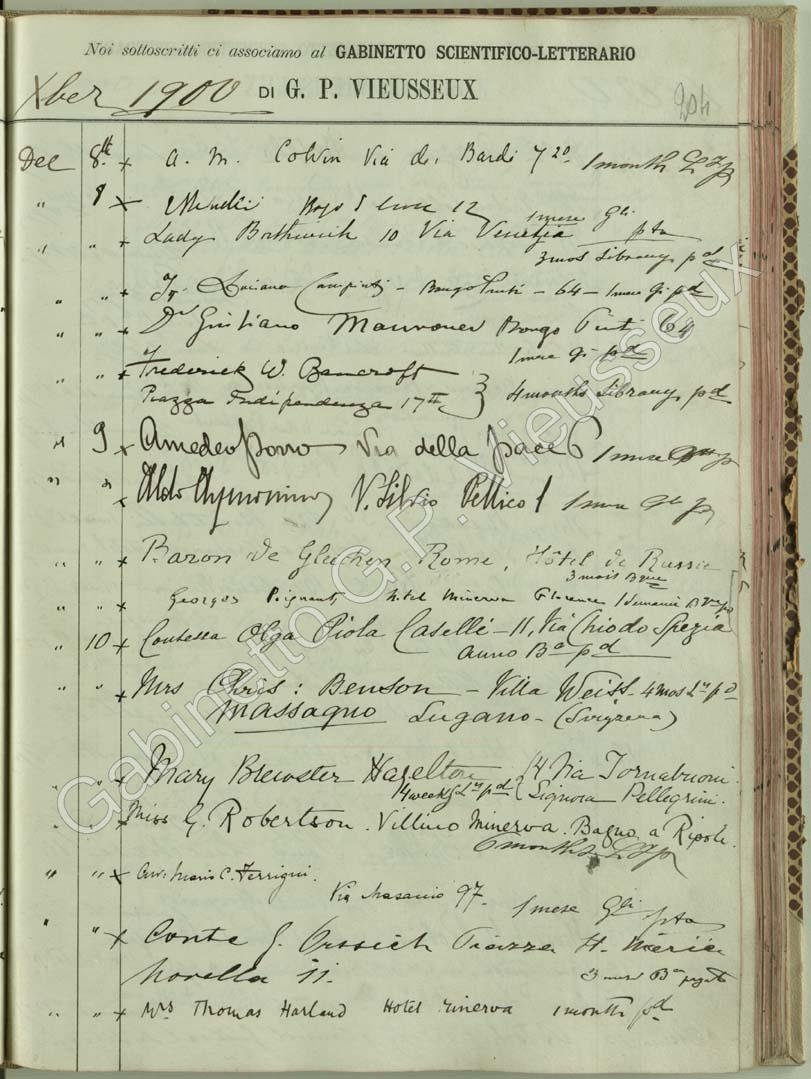 Noi sottoscritti ci associamo al GABINETTO SCIENTIFICO-LETTERARIO
Xber 1900 DI G. P. VIEUSSEUX
204
Dec 8th x A. M. Colvin Via de' Bardi 7 2o 1 month
" 8 x 12 1 mese Gli pta
" " x Lady Borthwick 10 Via Venezia
3 mos Library pd
" " x Luciano 64 - 1 mese Gi pd
" " x Dr Giuliano Borgo Pinti 64
1 mese Gi pd
" " x Frederick W. Bancroft
Piazza Indipendenza 17 } 4 months Library pd
" 9 x Amedeo Porro Via della Pace 6 1 mese
" " x Aldo Aymonino V. Silvio Pellico 1 1 mese
" " x Baron de Gleichen Rome, Hôtel de Russie
3 mois Bque
" " x Georges Hotel Minerva Florence 1 semaine
" 10 x Contessa Olga Piola Caselli - 11, Via Chiodo Spezia
anno Ba pd
" " x Mrs Chris: Benson - Villa Weiss - 4 mos Ly pd
Massagno Lugano - (Svizzera)
" x Mary Brewster Hazelton 14 Via Tornabuoni
14 weeks Ly pd Signora Pellegrini.
" x Miss G. Robertson. Villino Minerva. Bagno a Ripoli.
6 months
" " x Avv: Mario C. Ferrigni.
Via Masaccio 97. 1 mese Gli pta
" " x Conte G. Orssich Piazza S. Maria
Novella 11. 3 mesi Ba
" " x Mrs Thomas Harland Hotel Minerva 1 month pd
Gabinetto G.P. Vieusseux